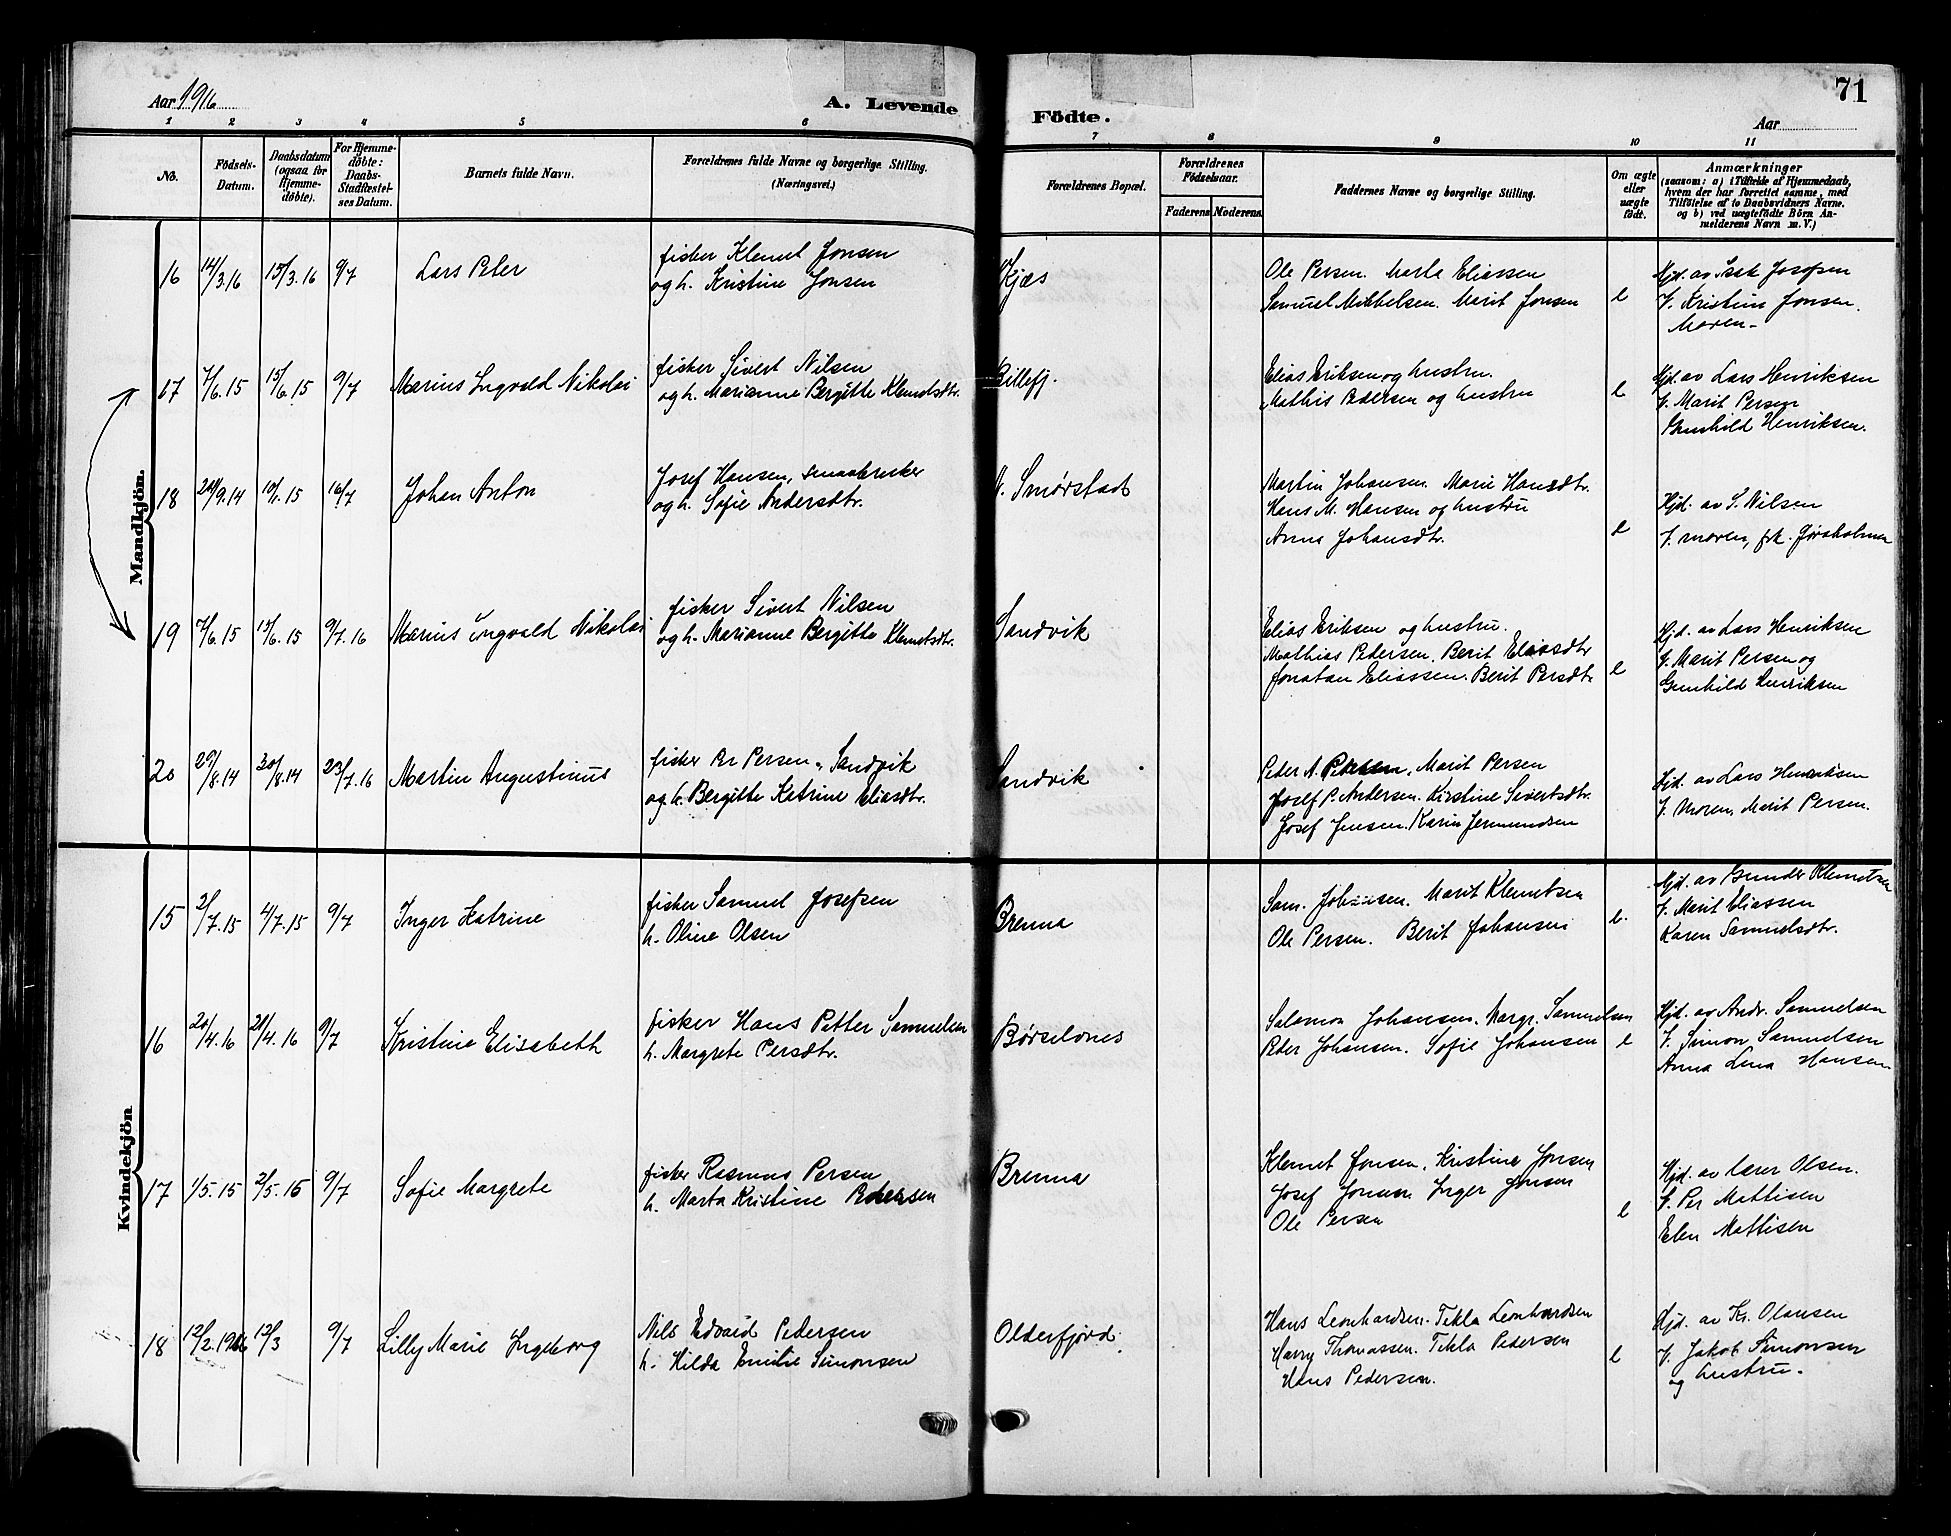 Aar 1916
A. Levende
Födte.
71
Aar
1 2 3 4 5 6 7 8 9 10 11
No.
Födsels-Datum.
Daabsdatum (ogsaa for Hjemme-døbte).
For Hjemme-døbte: Daabs-Stadfæstel-ses Datum.
Barnets fulde Navn.
Forældrenes fulde Navne og borgerlige Stilling. (Næringsvei.)
Forældrenes Bopæl.
Forældrenes Födselsaar.
Faderens Moderens
Faddernes Navne og borgerlige Stilling.
Om ægte eller uægte født.
Anmærkninger
(saasom: a) i Tilfælde af Hjemmedaab,
hvem der har forrettet samme, med
Tilföielse af to Daabsvidners Navne.
og b) ved uægtefödte Börn An-
melderens Navn m. V.)
Mandkjön.
16 14/3.16 15/3.16 9/7 Lars Peter
fisker Klemet Jonsen
og h. Kristine Jonsen
Kjæs
Ole Persen. Marta Eliassen
Samuel Mikkelsen. Marit Jonsen
e
Hjd. av Isak Josefsen
V. Kristine Jonsen.
Moren
17 7/6.15 15/6.15 9/7 Marius Ingvald Nikolai
fisker Sivert Nilsen
og h. Marianne Bergitte Klemetsdtr.
Billefj.
Elias Eriksen og hustru.
Mathis Pedersen og hustru
e
Hjd. av Lars Henriksen
V. Marit Persen
Gunhild Henriksen.
18 24/9.14 10/1.15 16/7 Johan Anton
Josef Hansen, smaabruker
og h. Sofie Andersdtr.
N. Smørstad
Martin Johansen. Marie Hansdtr.
Hans M. Hansen og hustru
Anna Johansdtr.
e
Hjd. av S. Nilsen
V. moren, frk. Jørsholmen
19 7/6.15 15/6.15 9/7.16 Marius Ingvald Nikolai
fisker Sivert Nilsen
og h. Marianne Bergitte Klemetsdtr.
Sandvik
Elias Eriksen og hustru.
Mathias Pedersen, Berit Eliasdtr
Jonatan Eliassen. Berit Persdtr
e
Hjd. av Lars Henriksen
V. Marit Persen og
Gunhild Henriksen
20 29/8.14 30/8.14 23/7.16 Martin Augustinus
fisker Per Persen, Sandvik
og h. Bergitte Katrine Eliasdtr.
Sandvik
Peter A. Petersen, Marit Persen
Josef P. Andersen. Kirstine Sivertsdtr.
Josef Jensen. Karin Jermundsen
Hjd. av Lars Henriksen
V. moren, Marit Persen.
Kvindekjön
15 2/7.15 4/7.15 9/7 Inger Katrine
fisker Samuel Josefsen
h. Oline Olsen
Brenna
Sam. Johansen. Marit Klemetsen
Ole Persen. Berit Johansen
e.
Hjd. av Gunder Klemetsen
V. Marit Eliassen
Karen Samuelsdtr.
16 20/4.16 21/4.16 9/7 Kristine Elisabeth
fisker Hans Petter Samuelsen
h. Margrete Persdtr.
Børselvnes
Salamon Johansen. Margr. Samuelsen
Peder Johansen. Sofie Johansen
e
Hjd. av Andr. Samuelsen
V. Simon Samuelsen
Anna Lena Hansen
17 1/5.15 2/5.15 9/7 Sofie Margrete
fisker Rasmus Persen
h. Marta Kristine Pedersen
Brenna
Klemet Jonsen, Kristine Jonsen
Josef Jonsen. Inger Jonsen
Ole Persen
e
Hjd. av lærer Olsen.
V. Per Mattisen
Elen Mattisen
18 12/2.1916 12/3 9/7 Lilly Marie Ingeborg
Nils Edvard Pedersen
h. Hilda Emilie Simonsen
Olderfjord.
Hans Leonhardsen. Tekla Leonhardsen
Harry Thomassen. Tekla Pedersen
Hans Pedersen.
e
Hjd. av Kr. Olausen
V. Jakob Simonsen
og hustru.